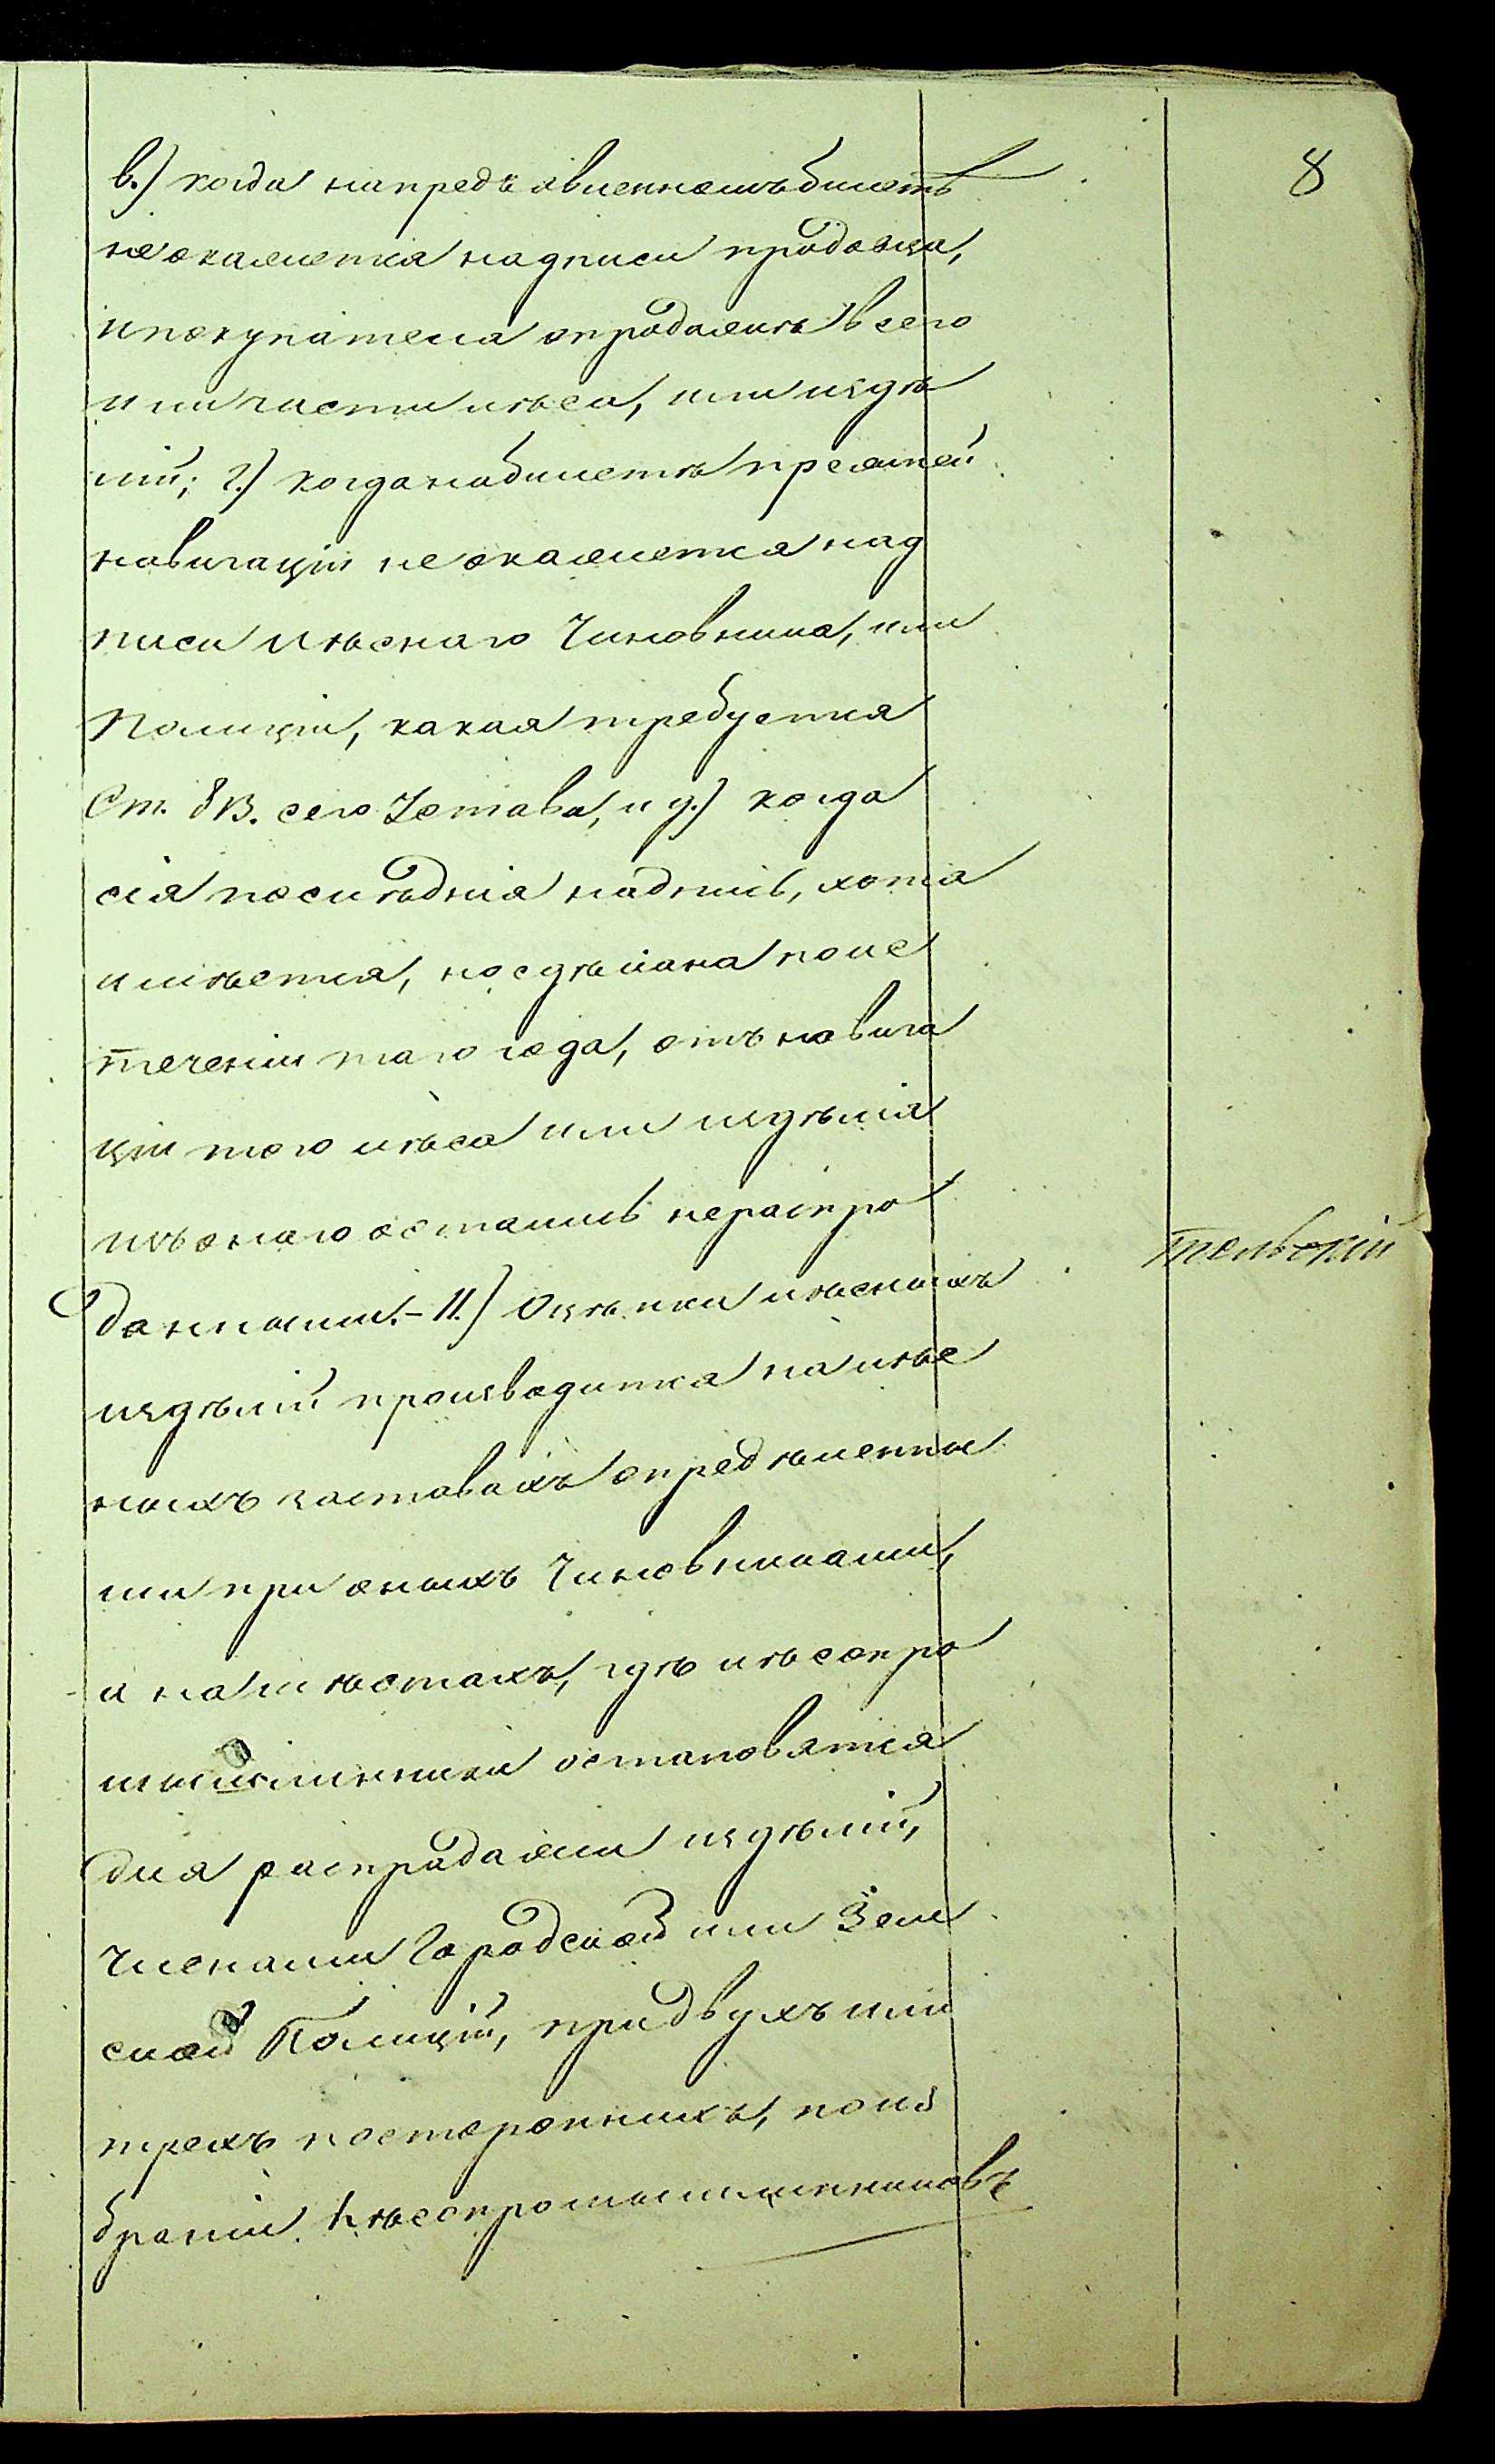 8
в.) когда на предъявленномъ билетѣ
не окажется надписи продавца,
и покупателя о продажѣ всего
или части лѣса, или издѣ
лій; г.) когда на билетѣ прежней
навигаціи не окажется над
писи Лѣснаго Чиновника, или
Полиціи, какая требуется
Ст. 813. сего Устава, и д.) когда
сія послѣдняя надпись, хотя
имѣется, но сдѣлана по ис
теченіи того года, отъ навига
ціи коего лѣса или издѣлія
изъ онаго остались нераспро
данными. – 11.) Оцѣнки лѣсныхъ
издѣлій производится на лѣс
ныхъ заставахъ опредѣленны
ми при оныхъ Чиновниками,
а на мѣстахъ, гдѣ лѣсопро
мышленники остановятся
для распродажи издѣлій,
Членами Городской или Зем
ской Полиціи, при двухъ или
трехъ постороннихъ, по из
браніи Лѣсопромышленниковъ
тельскій